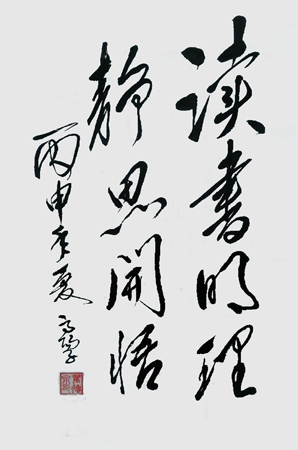 读书明理
静思开悟
丙申年夏